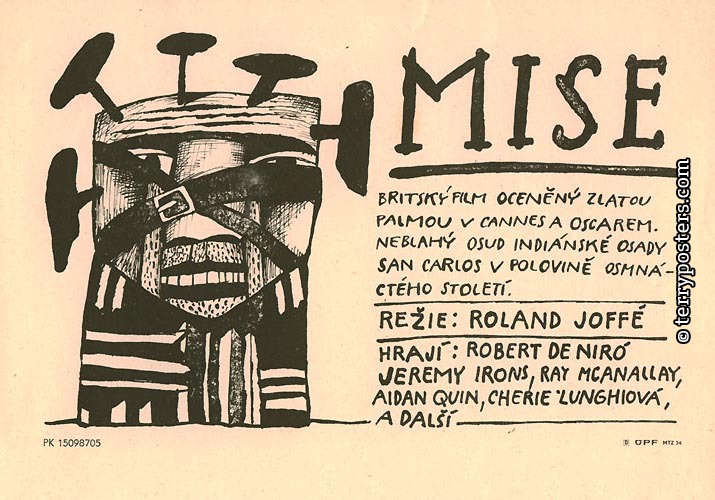 MISE
BRITSKÝ FILM OCENĚNÝ ZLATOU
PALMOU V CANNES A OSCAREM.
NEBLAHÝ OSUD INDIÁNSKÉ OSADY
SAN CARLOS V POLOVINĚ OSMNÁ-
CTÉHO STOLETÍ.
REŽIE: ROLAND JOFFÉ
HRAJÍ: ROBERT DE NIRÓ
JEREMY IRONS, RAY MCANALLAY,
AIDAN QUIN, CHERIE LUNGHIOVÁ,
A DALŠÍ
PK 15098705
ÚPF MTZ 34
© terryposters.com